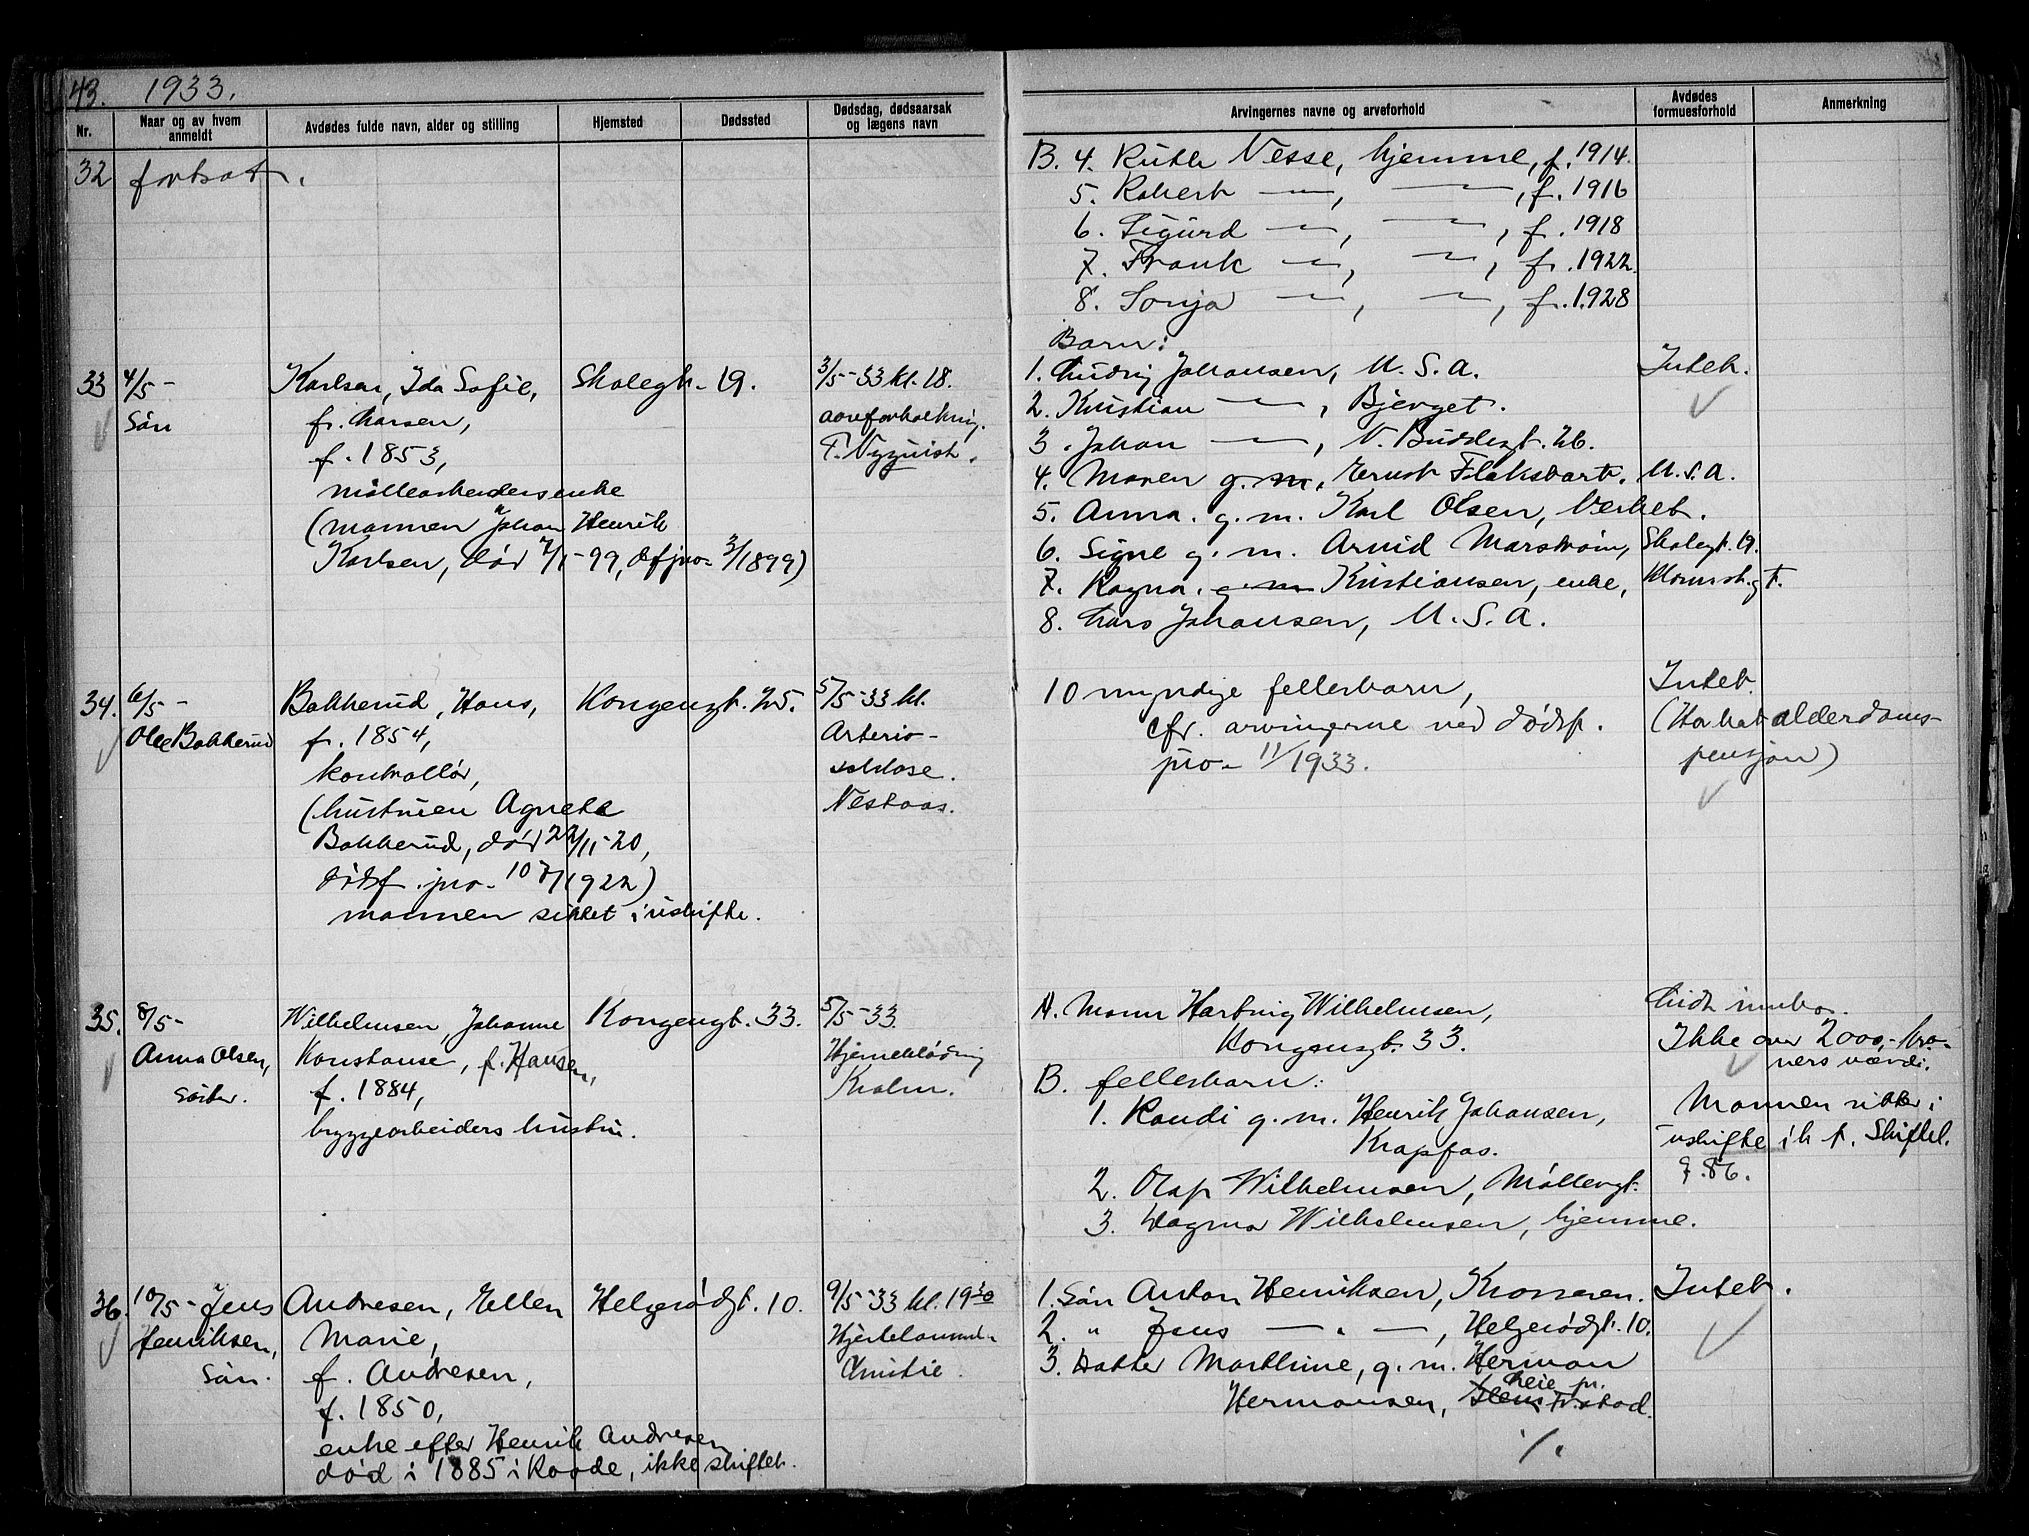 43. 1933.
Nr.
Naar og av hvem anmeldt
Avdødes fulde navn, alder og stilling
Hjemsted
Dødssted
Dødsdag, dødsaarsak og lægens navn
Arvingernes navne og arveforhold
Avdødes formuesforhold
Anmerkning
32 fortsat.
B. 4. Ruth Nesse, hjemme, f. 1914.
5. Robert — , — , f. 1916
6. Sigurd — , — , f. 1918
7. Frank — , — , f. 1922.
8. Sonja — , — , f. 1928
33 4/5 -
Sön
Karlsen, Ida Sofie,
f. Larsen,
f. 1853,
møllearbeiders enke
(mannen Johan Henrik
Karlsen, død 7/1-99, dfpro. 3/1899)
Skolegt. 19.
3/5-33 kl. 18.
aareforkalkning.
T. Nyquist.
Barn:
1. Ludvig Johansen, U.S.A.
2. Kristian — , Bjerget.
3. Johan — , N. Buddegt. 26.
4. Maren g.m. Ernst Flakstart. U.S.A.
5. Anna. g.m. Karl Olsen, Verket.
6. Signe g.m. Arvid Marstrøm, Skolegt. 19.
7. Ragna. g.m. Kristiansen, enke, Blomstgt.
8. Lars Johansen, U.S.A.
Intet.
34. 6/5 -
Ole Bakkerud
Bakkerud, Hans,
f. 1854,
kontrollør,
(hustruen Agnete
Bakkerud, død 22/11-20,
dødsf. pro. 107/1922)
mannen sittet i uskifte.
Kongensgt. 25.
5/5-33 kl.
Arterio-
sclerose.
Nestaas.
10 myndige fellesbarn,
cfr. arvingerne ved dødsf.
pro. 11/1933.
Intet.
(Har hat alderdoms-
pensjon)
35. 8/5 -
Anna Olsen,
söster.
Wilhelmsen, Johanne
Konstanse, f. Hansen,
f. 1884,
bryggearbeiders hustru.
Kongensgt. 33.
5/5-33.
Hjerneblødning
Kholm.
A. Mann Hartvig Wilhelmsen,
Kongensgt. 33.
B. fellesbarn:
1. Randi g.m. Henrik Johansen,
Krapfos.
2. Olaf Wilhelmsen, Møllergt.
3. Dagmar Wilhelmsen, hjemme.
Lidt innbo.
Ikke over 2000,- kro-
ners værdi.
Mannen sitter i
uskifte i h.t. Skiftel.
§ 86.
36. 10/5 - Jens
Henriksen,
Sön.
Andresen, Ellen
Marie,
f. Andresen,
f. 1850,
enke efter Henrik Andresen
død i 1885 i Raade, ikke skiftet.
Helgerødgt. 10.
9/5-33 kl. 19 30
Christie.
1. Sön Anton Henriksen, Kransen.
2. " Jens — " — , Helgerødgt. 10.
3. Datter Marthine, g.m. Herman
Hermansen, Leie pr.
Fr.stad.
Intet.
./.